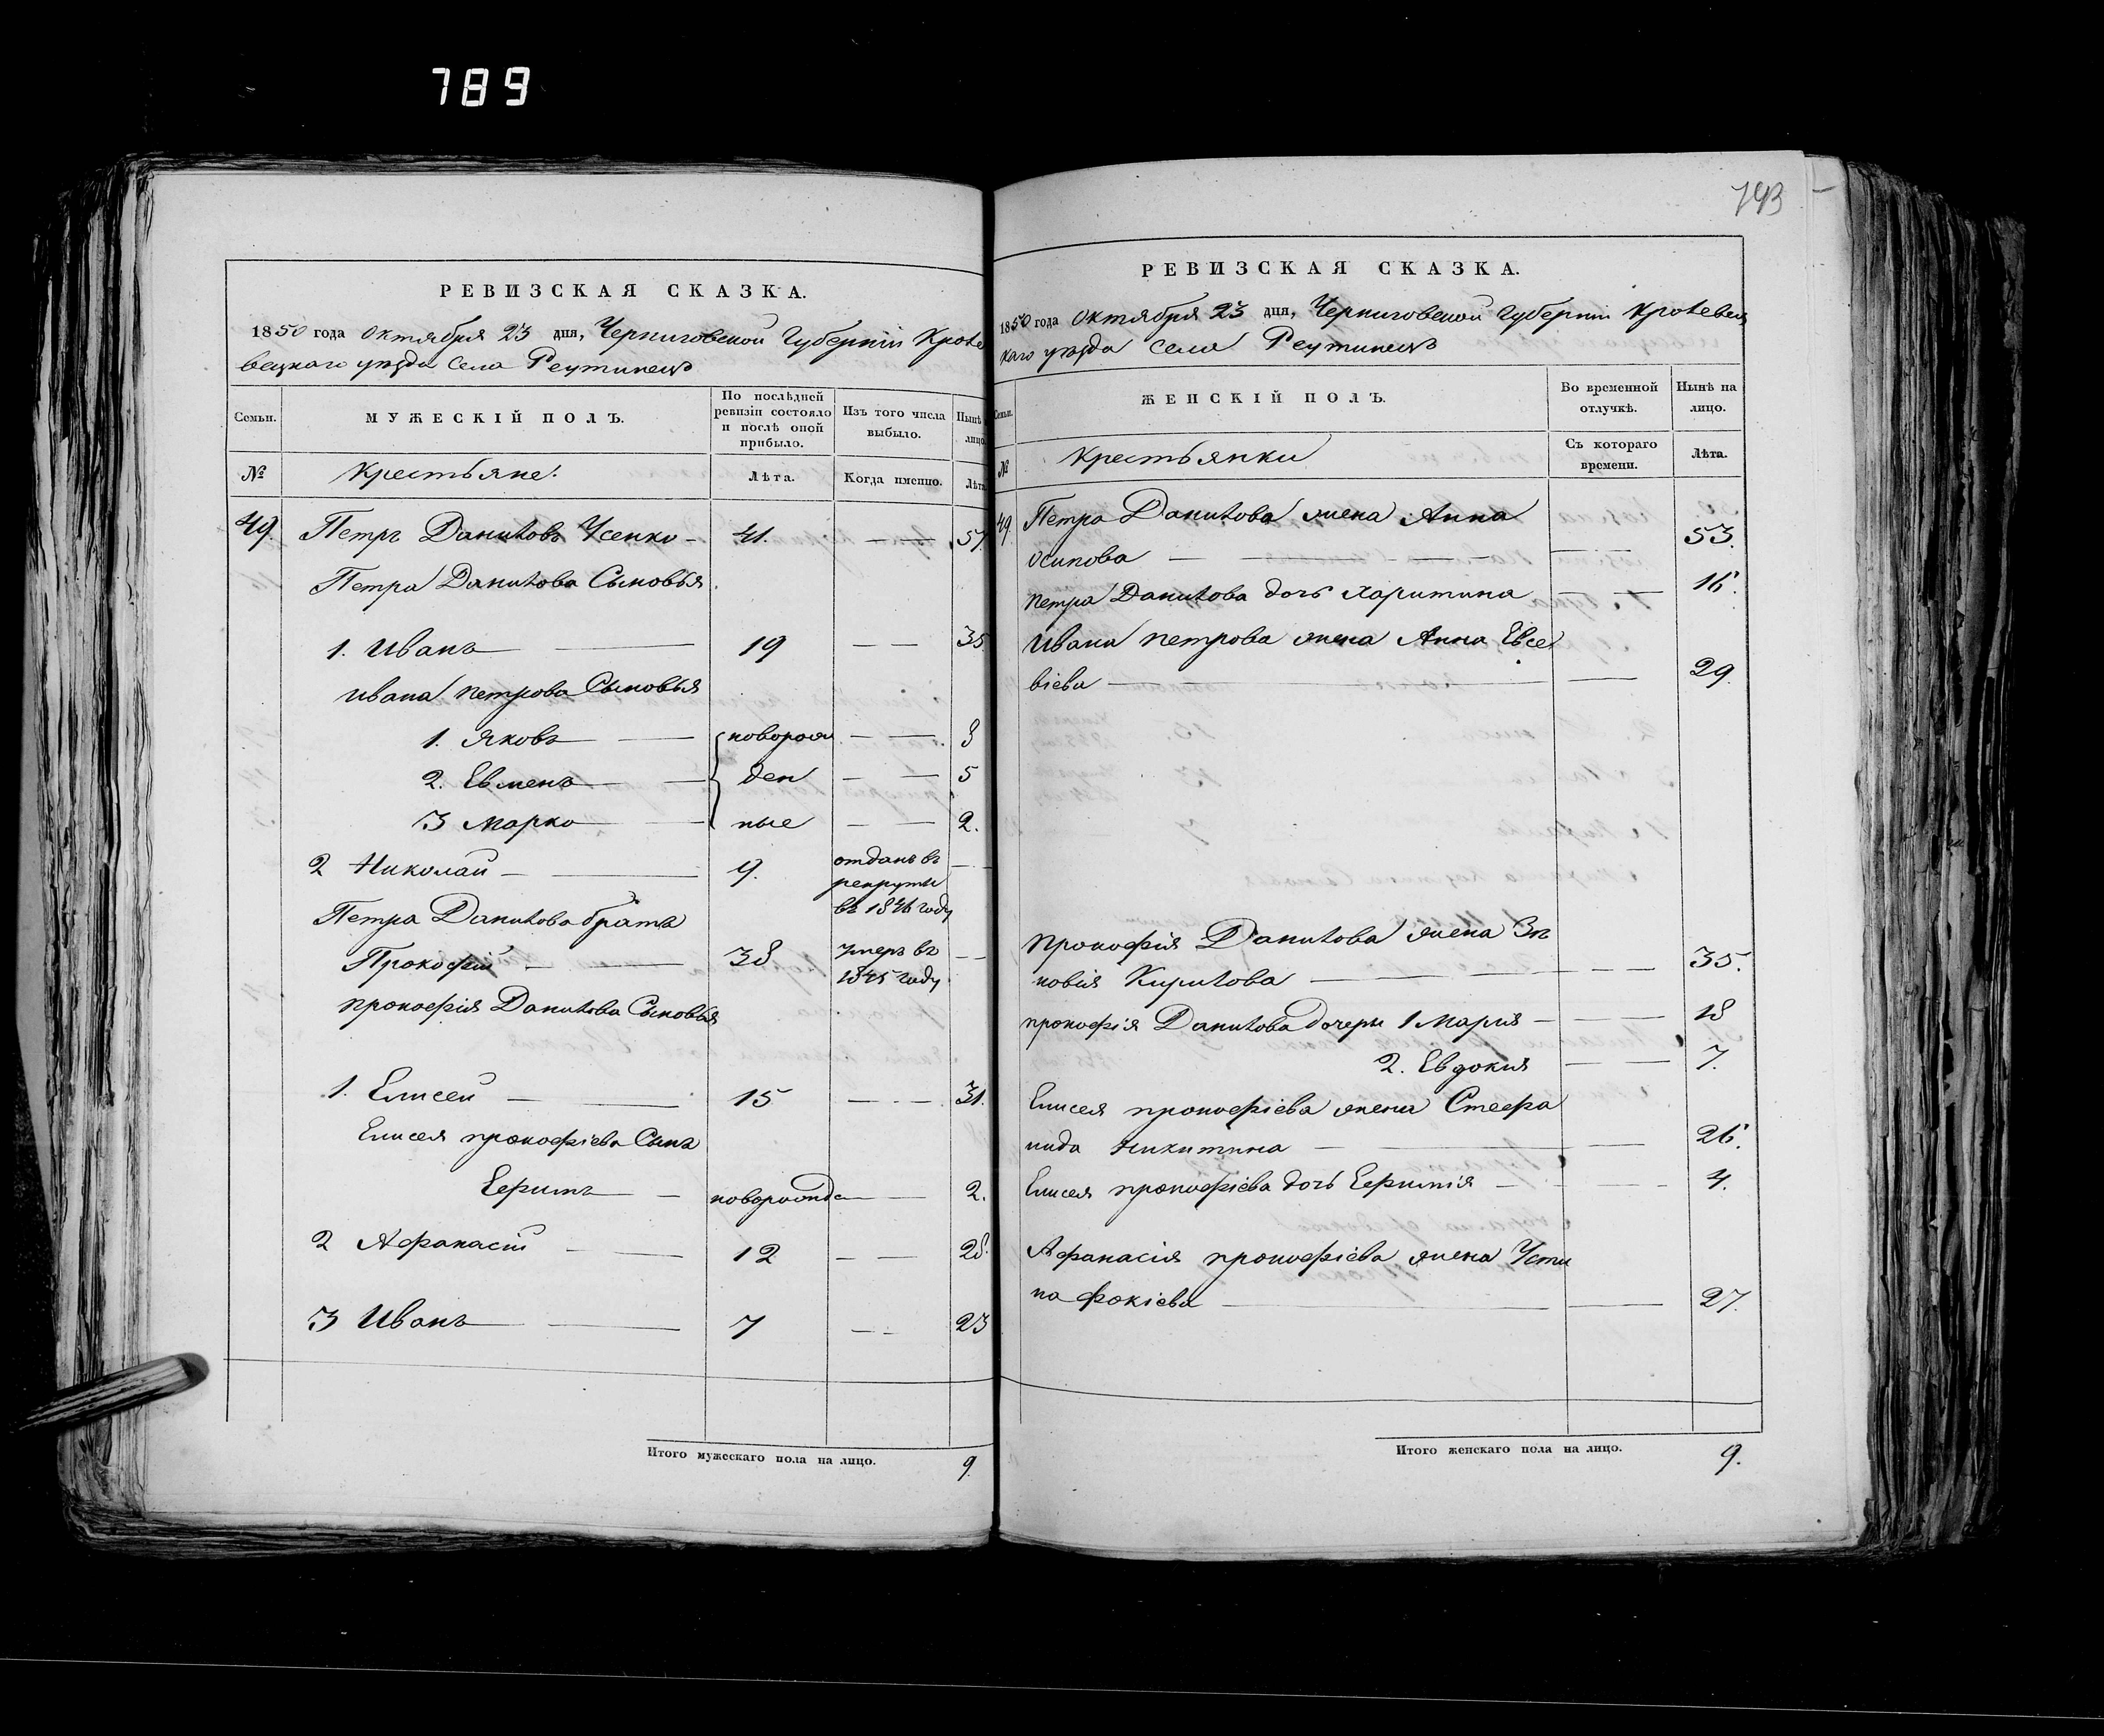 789
743
РЕВИЗСКАЯ СКАЗКА.
1850 года Октября 23 дня, Черниговской Губерніи Кроле
вецкаго уѣзда Села Реутинецъ
Семьи.
МУЖЕСКІЙ ПОЛЪ.
По послѣдней ревизіи состояло и послѣ оной прибыло.
Изъ того числа выбыло.
Нынѣ лицо
№
Крестьяне:
Лѣта.
Когда именно.
Лѣта
49. Петръ Даниловъ Усенко - 41. — — 57.
Петра Данилова Сыновья
1. Иванъ — 19 — — 35.
Ивана Петрова Сыновья
1. Яковъ — новорож — — 8
2. Евменъ — ден — — 5
3 Марко — ные — — 2.
2 Николай — 9. отданъ въ
рекруты
въ 1846 году
Петра Данилова братъ
Прокофій — 38 умеръ въ
1845 году
Прокофія Данилова Сыновья
1. Елисей — 15 — — 31.
Елисея Прокофіева Сынъ
Ефимъ — новорожде — 2.
2 Афанасій — 12 — — 28.
3 Иванъ — 7 — — 23
Итого мужескаго пола на лицо. 9.
РЕВИЗСКАЯ СКАЗКА.
1850 года Октября 23 дня, Черниговской Губерніи Кролевец
каго уѣзда Села Реутинецъ
Семьи.
ЖЕНСКІЙ ПОЛЪ.
Во временной отлучкѣ.
Нынѣ на лицо.
№
Крестьянки
Съ котораго времени.
Лѣта.
49. Петра Данилова жена Анна
Осипова — — 53.
Петра Данилова дочь Харитина — — 16.
Ивана Петрова жена Анна Евсе
віева — — 29.
Прокофія Данилова жена Зѣ
новія Кирилова — — 35.
Прокофія Данилова дочери 1 Марія — — 18
2. Евдокия — — 7.
Елисея Прокофіева жена Стефа
нида Никитина — — 26.
Елисея Прокофіева дочь Ефимія — — 4.
Афанасія Прокофіева жена Усти
на Фокіева — — 27.
Итого женскаго пола на лицо. 9.